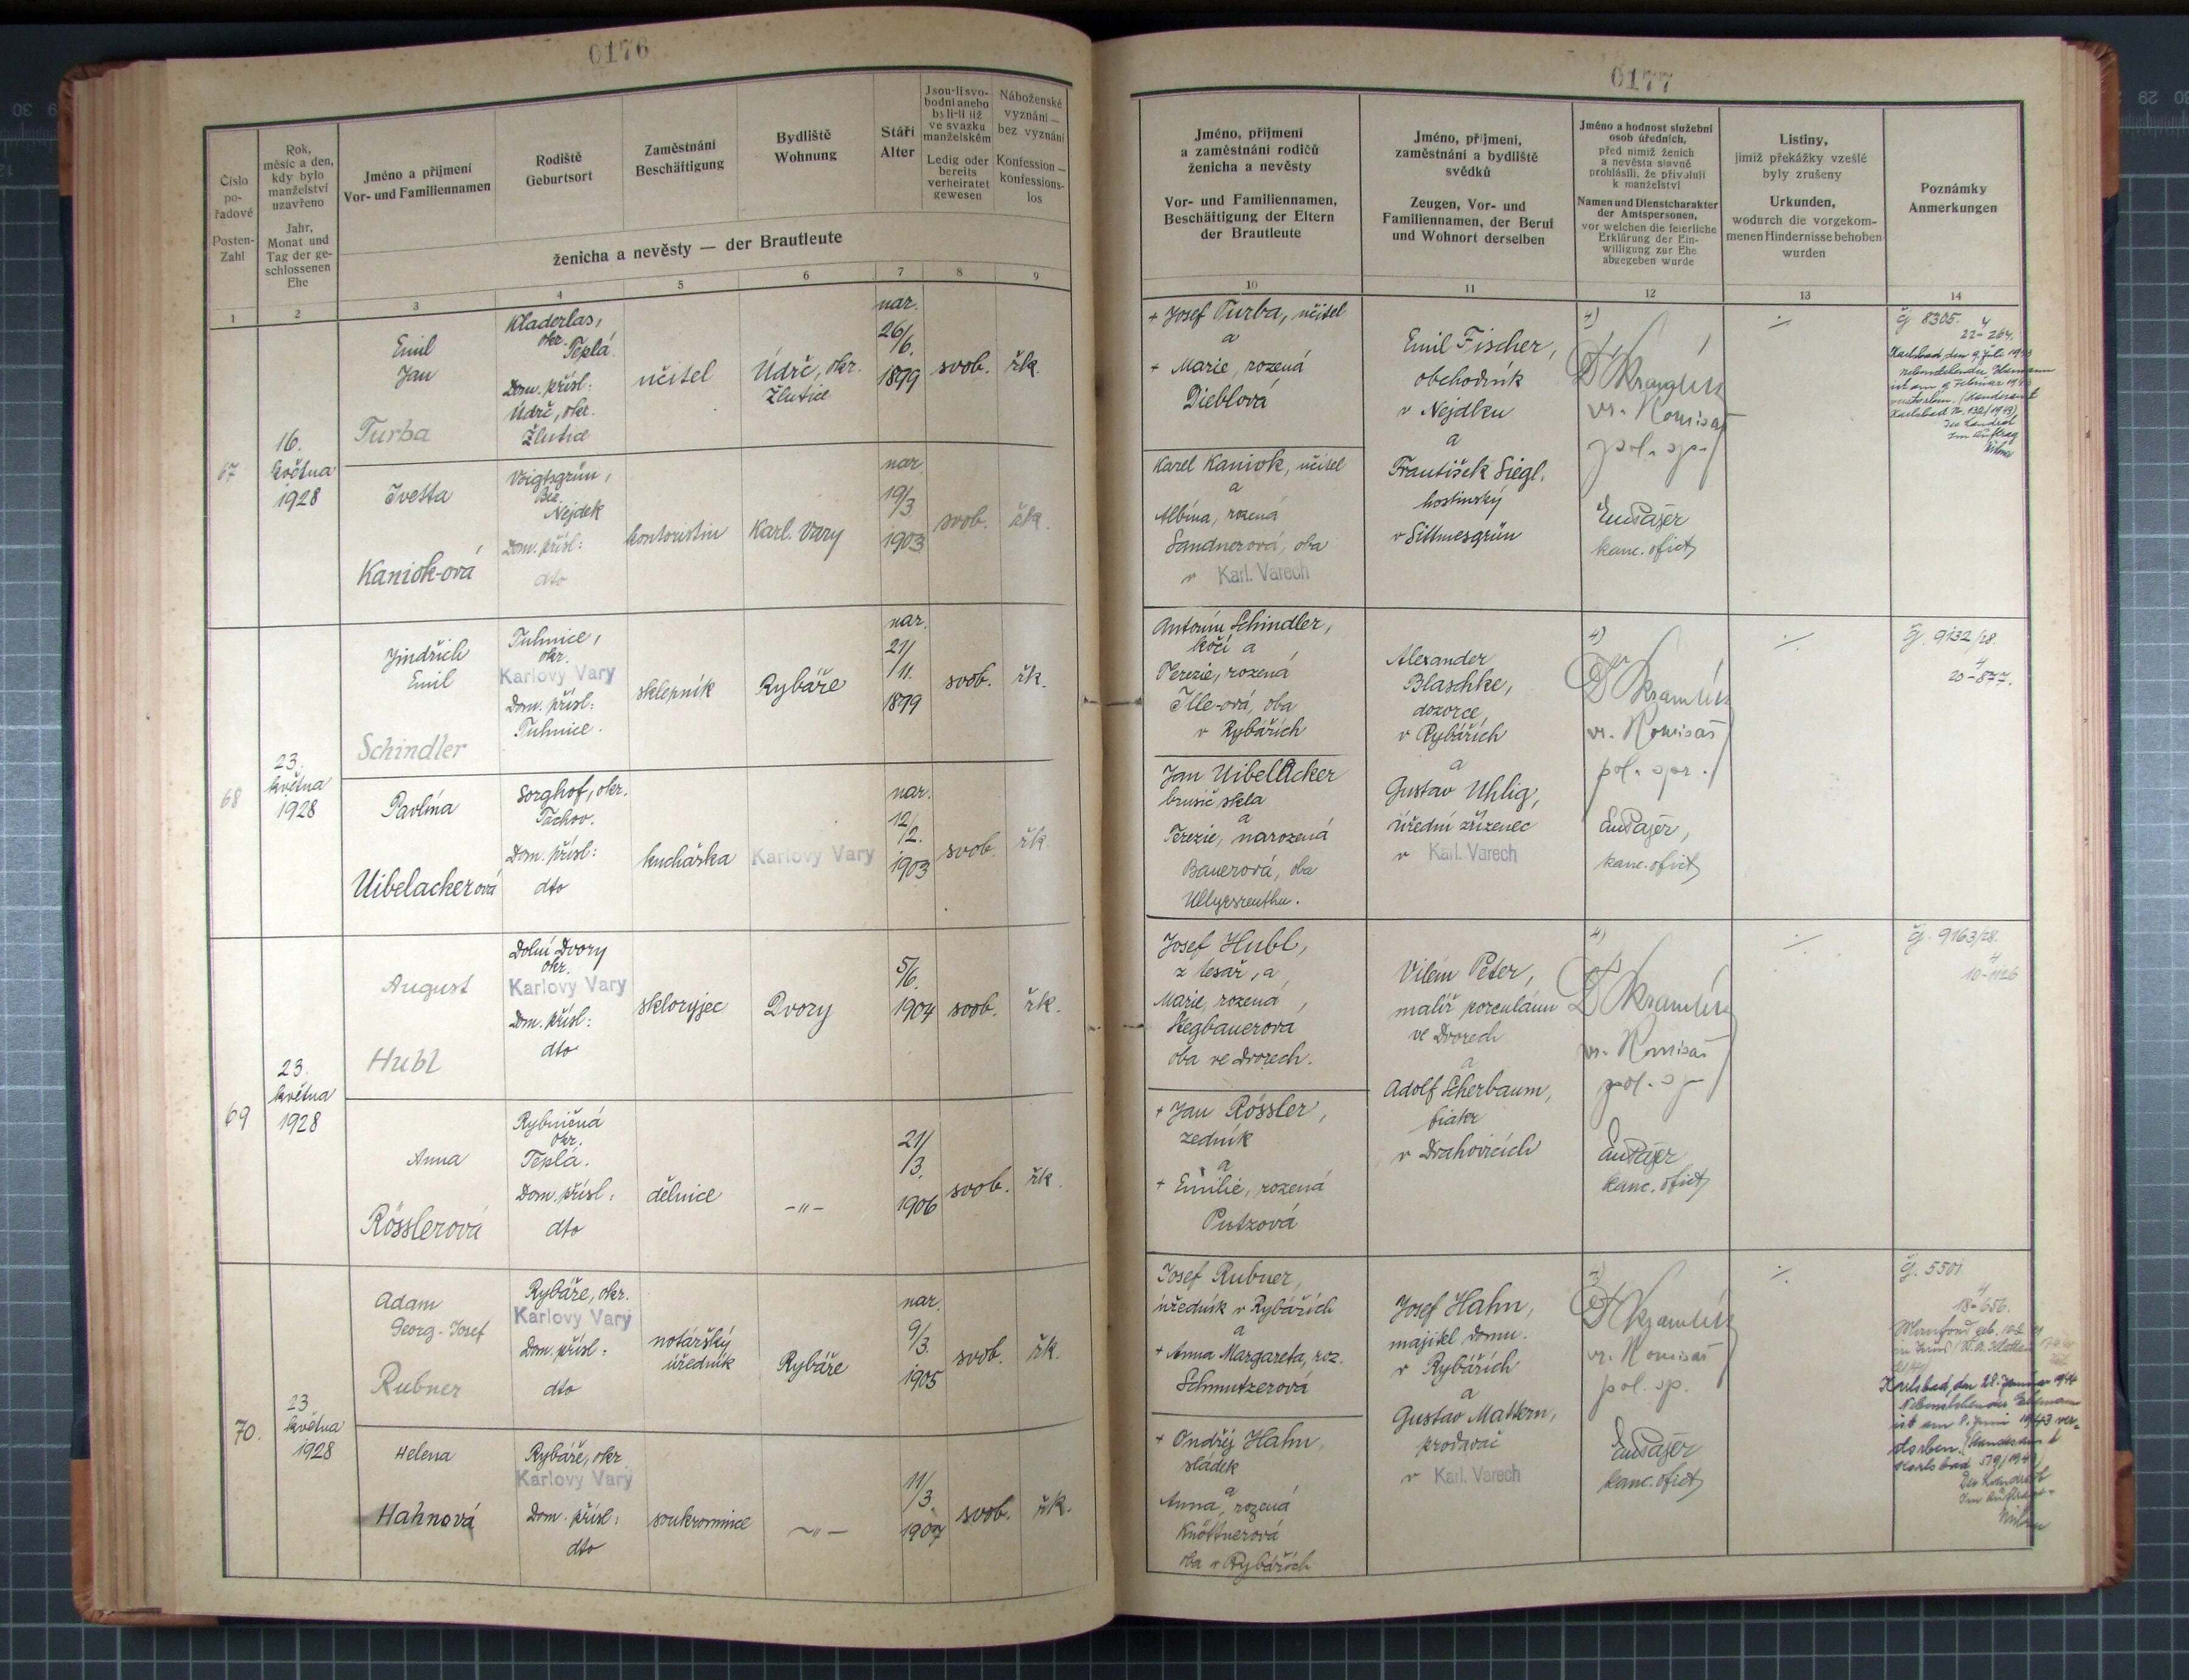 0176
Číslo
po-
řadové
Posten-
Zahl
Rok,
měsíc a den,
kdy bylo
manželství
uzavřeno
Jahr,
Monat und
Tag der ge-
schlossenen
Ehe
Jméno a příjmení
Vor- und Familiennamen
Rodiště
Geburtsort
Zaměstnání
Beschäftigung
Bydliště
Wohnung
Stáří
Alter
Jsou-li svo-
bodni anebo
byli-li již
ve svazku
manželském
Ledig oder
bereits
verheiratet
gewesen
Náboženské
vyznání —
bez vyznání
Konfession —
konfessions-
los
ženicha a nevěsty — der Brautleute
1 2 3 4 5 6 7 8 9
67
16.
května
1928
Emil
Jan
Turba
Kladerlas,
okr.
Teplá
Dom. přísl:
Údrč, okr.
Žlutice
učitel
Údrč, okr.
Žlutice
nar.
26/
6.
1899
svob.
řk.
Ivetta
Kaniok-ová
Voigtsgrün,
Nejdek
Dom. přísl:
dto
kontoristin
Karl. Vary
nar.
19/3
1903
svob.
řk.
68
23.
května
1928
Jindřich
Emil
Schindler
Tuhnice,
okr.
Karlovy Vary
Dom. přísl:
Tuhnice.
sklepník
Rybáře
nar.
21/
11.
1899
svob.
řk.
Pavlína
Uibelackerová
Sorghof, okr.
Tachov.
Dom. přísl:
dto
kuchařka
Karlovy Vary
nar.
12/
2.
1903
svob.
řk.
69
23.
května
1928
August
Hubl
Dolní Dvory
okr.
Karlovy Vary
Dom. přísl:
dto
skloryjec
Dvory
5/6.
1904
svob.
řk.
Anna
Rösslerová
Rybničná
okr.
Teplá.
Dom. přísl:
dto
dělnice
-"-
21/
3.
1906
svob.
řk.
70.
23
května
1928
Adam
Georg-Josef
Rubner
Rybáře, okr.
Karlovy Vary
Dom. přísl:
dto
notářský
úředník
Rybáře
nar.
9/3.
1905
svob.
řk.
Helena
Hahnová
Rybáře, okr
Karlovy Vary
Dom. přísl:
dto
soukromnice
-"-
11/
3.
1907
svob.
řk.
0177
Jméno, příjmení
a zaměstnání rodičů
ženicha a nevěsty
Vor- und Familiennamen,
Beschäftigung der Eltern
der Brautleute
Jméno, příjmení,
zaměstnání a bydliště
svědků
Zeugen, Vor- und
Familiennamen, der Beruf
und Wohnort derselben
Jméno a hodnost služební
osob úředních,
před nimiž ženich
a nevěsta slavně
prohlásili, že přivolují
k manželství
Namen und Dienstcharakter
der Amtspersonen,
vor welchen die feierliche
Erklärung der Ein-
willigung zur Ehe
abgegeben wurde
Listiny,
jimiž překážky vzešlé
byly zrušeny
Urkunden,
wodurch die vorgekom-
menen Hindernisse behoben
wurden
Poznámky
Anmerkungen
10 11 12 13 14
+ Josef Turba, učitel
a
+ Marie, rozená
Dieblová
Karel Kaniok, učitel
a
Albína, rozená
Sandnerová, oba
v Karl. Varech
Emil Fischer,
obchodník
v Nejdku
a
František Siegl.
hostinský
v Sittmesgrün
vr. Komisař
pol. spr.
kanc. ofic
č. 8305.
4
22-264.
Karlsbad, den 9. Juli 1943
nebenstehender Ehemann
ist am 9 Februar 1943
verstorben. (Standesamt
Karlsbad Nr. 132/1943)
Der Landrat
Im Auftrag
Antonín Schindler,
kočí a
Terezie, rozená
Ille-ová, oba
v Rybářích
Jan Uibelacker
brusič skla
a
Terezie, narozená
Bauerová, oba
Alexander
Blaschke,
dozorce
v Rybářích
a
Gustav Uhlig,
úřední zřízenec
v Karl. Varech
4)
vr. Komisař
pol. spr.
kanc. ofic
č. 9132/28.
4
20-877.
Josef Hubl,
tesař, a
Marie, rozená,
Stegbauerova
oba ve Dvorech.
+ Jan Rössler,
zedník
a
+ Emilie, rozená
Putzová
Vilém Peter,
malíř porculánu
ve Dvorech
a
Adolf Scherbaum,
fiakr
v Drahovicích
4)
vr. Komisař
kanc. ofic
č. 9163/28.
4
10-1126
Josef Rubner,
úředník v Rybářích
a
+ Anna Margareta, roz.
Schmutzerová
+ Ondřej Hahn,
sládek
a
Anna, rozená
Knöttnerová
oba v Rybářích
Josef Hahn,
majitel domu.
v Rybářích
a
Gustav Mattern,
prodavač
v Karl. Varech
vr. Komisař
pol. sp.
kanc. ofic
č. 5501
4
18-656.
Karlsbad, den 28. Januar 1944
Nebenstehender Ehemann
ist am 8. Juni 1943 ver-
storben. (Standesamt
Karlsbad 579/1943)
Der Landrat
Im Auftrag